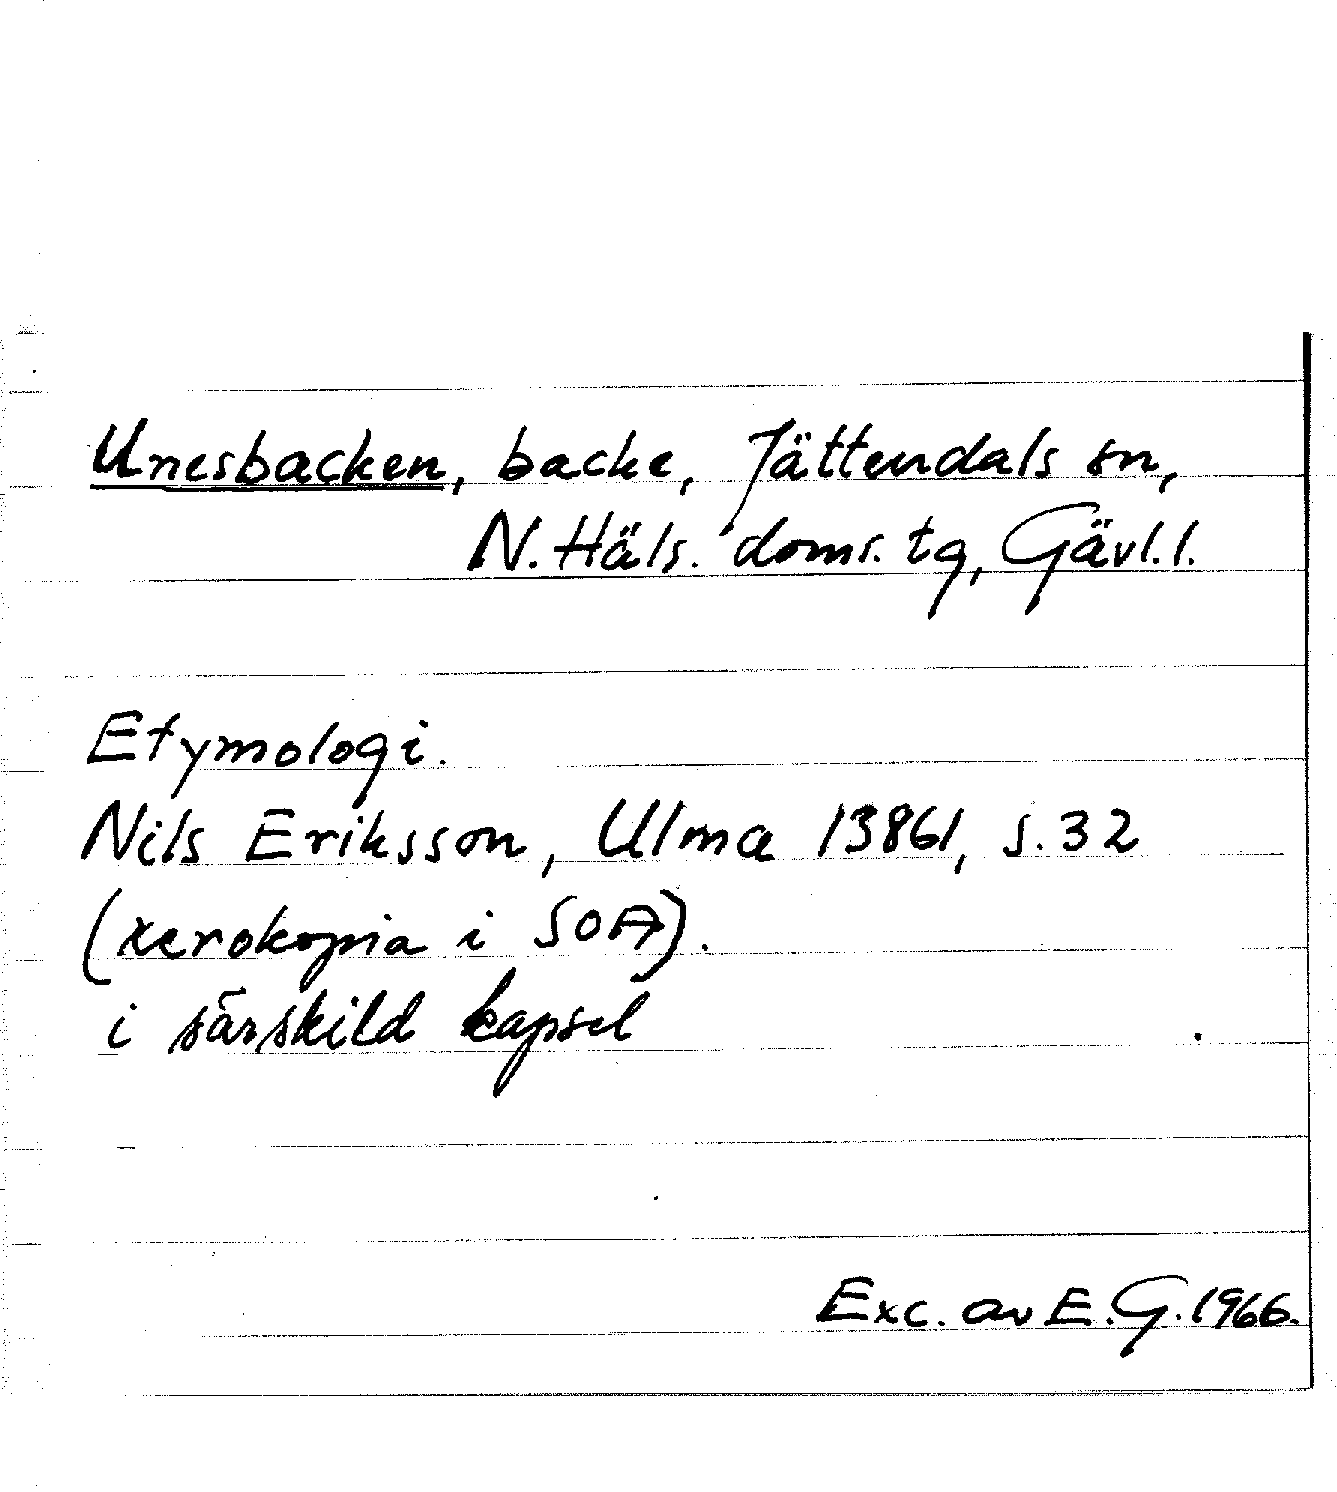 Unesbacken, backe, Jättendals sn,
N. Häls. doms. tg, Gävl. l.
Etymologi.
Nils Eriksson, Ulma 13861, s. 32
(xerokopia i SOA).
i särskild kapsel
Exc. av E. G. 1966.